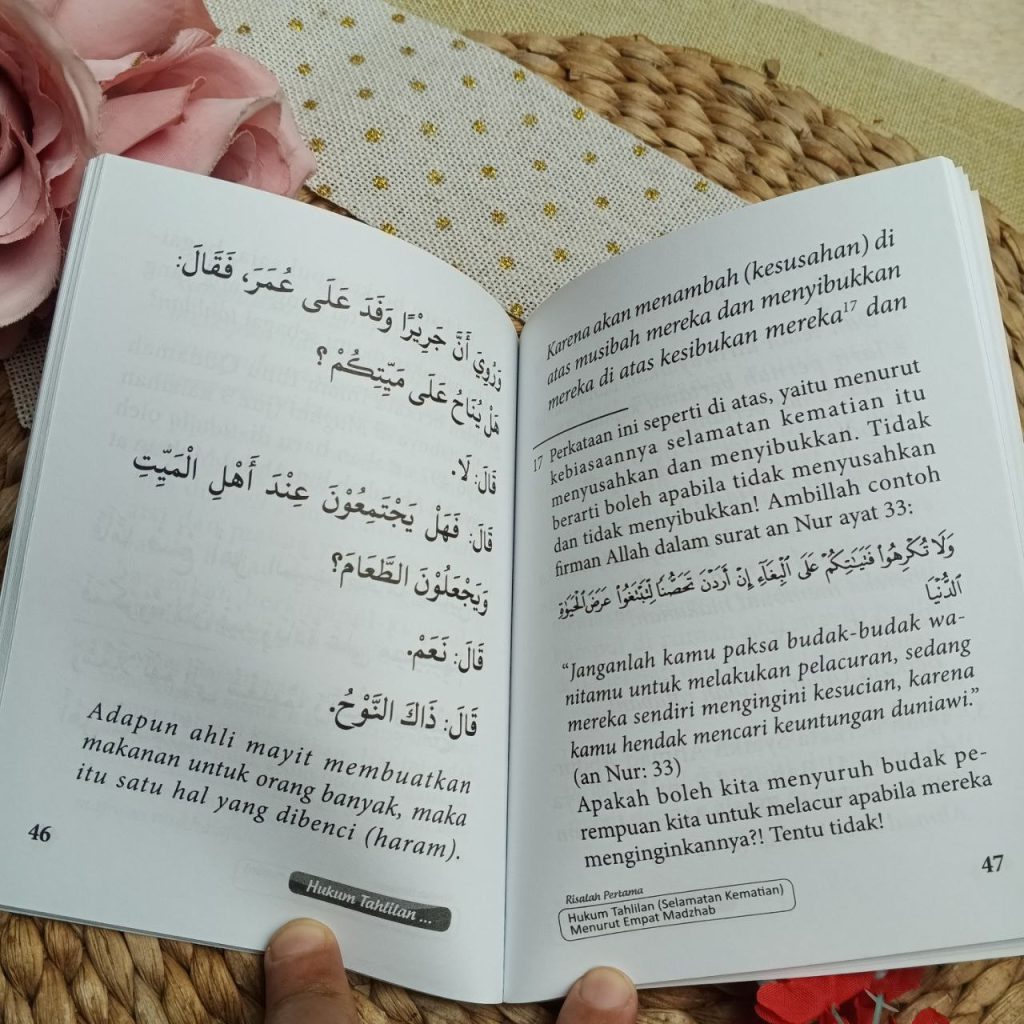 وَرُوِيَ أَنَّ جَرِيْرًا وَفَدَ عَلَى عُمَرَ، فَقَالَ:
هَلْ يُنَاحُ عَلَى مَيِّتِكُمْ ؟
قَالَ: لَا.
قَالَ: فَهَلْ يَجْتَمِعُوْنَ عِنْدَ أَهْلِ الْمَيِّتِ
وَيَجْعَلُوْنَ الطَّعَامَ؟
قَالَ: نَعَمْ.
قَالَ: ذَاكَ النَّوْحُ.
Adapun ahli mayit membuatkan
makanan untuk orang banyak, maka
itu satu hal yang dibenci (haram).
46
Hukum Tahlilan ...
Karena akan menambah (kesusahan) di
atas musibah mereka dan menyibukkan
mereka di atas kesibukan mereka17 dan
17 Perkataan ini seperti di atas, yaitu menurut
kebiasaannya selamatan kematian itu
menyusahkan dan menyibukkan. Tidak
berarti boleh apabila tidak menyusahkan
dan tidak menyibukkan! Ambillah contoh
firman Allah dalam surat an Nur ayat 33:
وَلَا تُكْرِهُوا۟ فَتَيَـٰتِكُمْ عَلَى ٱلْبِغَآءِ إِنْ أَرَدْنَ تَحَصُّنًا لِّتَبْتَغُوا۟ عَرَضَ ٱلْحَيَوٰةِ
ٱلدُّنْيَا
“Janganlah kamu paksa budak-budak wa-
nitamu untuk melakukan pelacuran, sedang
mereka sendiri mengingini kesucian, karena
kamu hendak mencari keuntungan duniawi.”
(an Nur: 33)
Apakah boleh kita menyuruh budak pe-
rempuan kita untuk melacur apabila mereka
menginginkannya?! Tentu tidak!
47
Risalah Pertama
Hukum Tahlilan (Selamatan Kematian)
Menurut Empat Madzhab